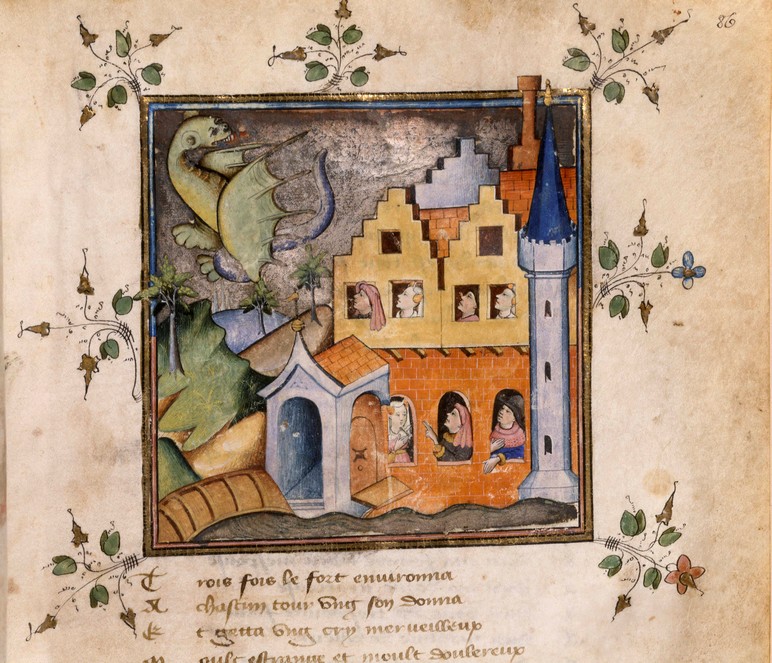 86
Trois fois le fort environna
A chascun tour ung son donna
Et getta ung cry merveilleux
Moult estrange et moult doubereux